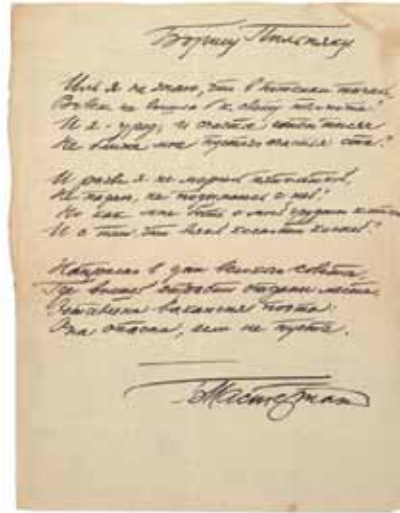 Борису Пильняку
Иль я не знаю, что в потемки тычась
Вовек не вышла б к свету темнота?
И я - урод, и счастье сотен тысяч
Не ближе мне пустого счастья ста?
И разве я не мерюсь пятилеткой,
Не падаю, не подымаюсь с ней?
Но как мне быть с моей грудною клеткой
И с тем что всякой косности косней?
Напрасно в дни великого совета,
Где высшей страсти отданы места,
Оставлена вакансия поэта:
Она опасна, если не пуста.
Б Пастернак